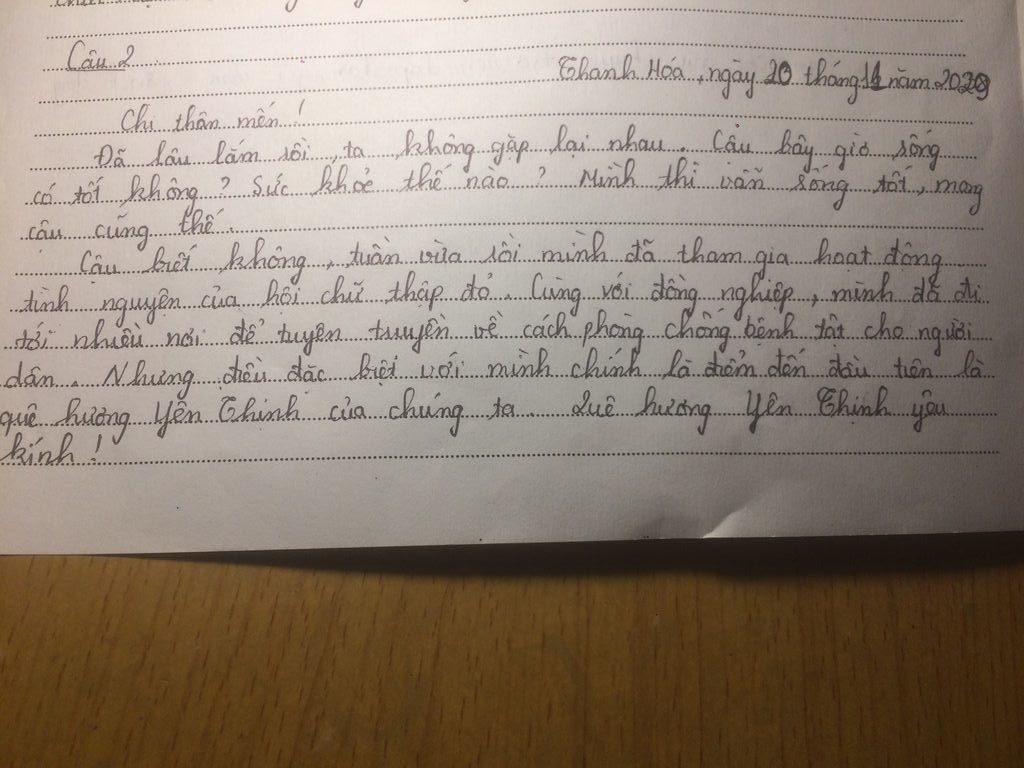 Câu 2
Thanh Hóa, ngày 20 tháng 11 năm 2029
Chi thân mến!
Đã lâu lắm rồi, ta không gặp lại nhau. Cậu bây giờ sống
có tốt không? Sức khoẻ thế nào? Mình thì vẫn sống tốt, mong
cậu cũng thế.
Cậu biết không, tuần vừa rồi mình đã tham gia hoạt động
tình nguyện của hội chữ thập đỏ. Cùng với đồng nghiệp, mình đã đi
tới nhiều nơi để tuyên truyền về cách phòng chống bệnh tật cho người
dân. Nhưng điều đặc biệt với mình chính là điểm đến đầu tiên là
quê hương Yên Thịnh của chúng ta. Quê hương Yên Thịnh yêu
kính!